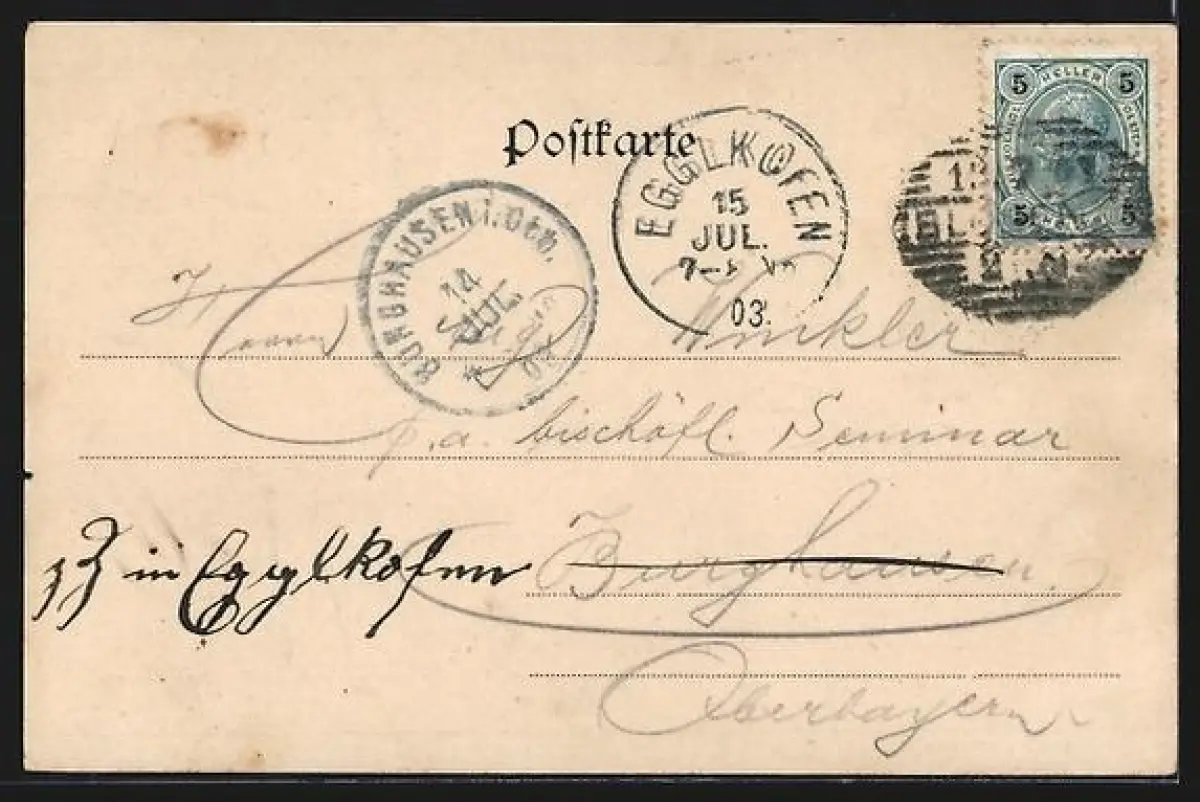 5 HELLER 5
Postkarte
EGGLKOFEN
15
JUL.
03.
5 5
BURGHAUSEN i. Obb.
14
JUL.
Herrn Hugo Winkler
p. a. bischöfl. Seminar
zZ in Egglkofen Burghausen
Oberbayern